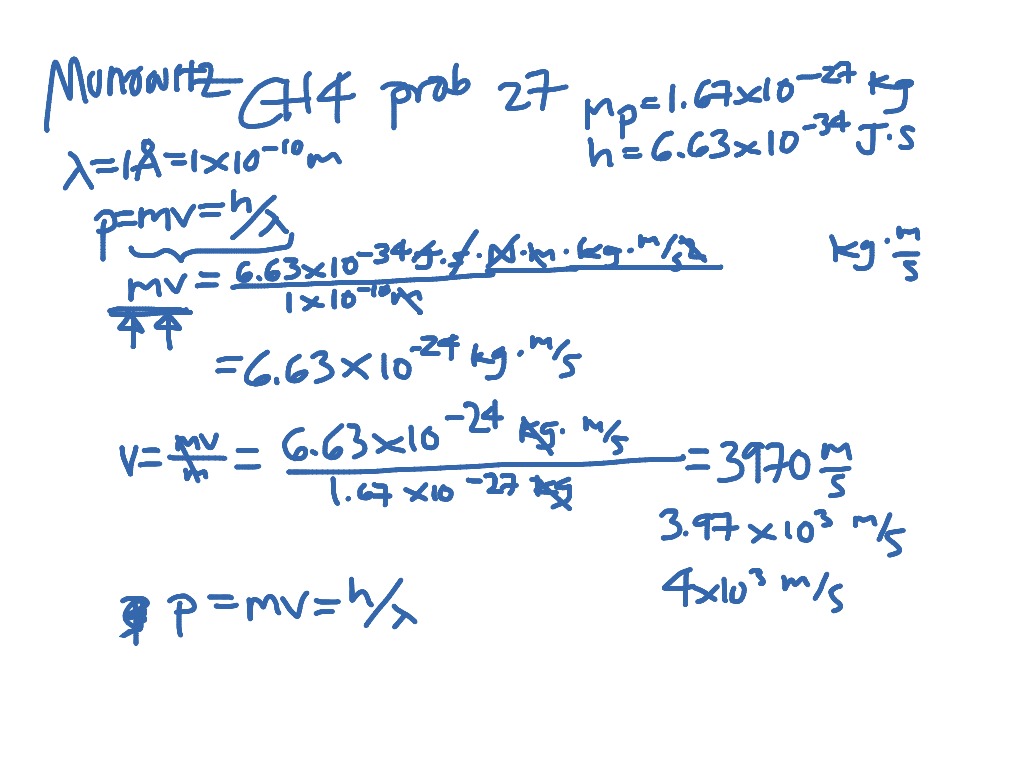 CH4 prob 27
mp = 1.67×10^-27 kg
h = 6.63×10^-34 J·s
λ = 1Å = 1×10^-10 m
p = mv = h/λ
kg · m/s
mv = 6.63×10^-34 J·s · N·m · kg·m/s² / 1×10^-10 m
= 6.63×10^-24 kg · m/s
v = mv/m = 6.63×10^-24 kg · m/s / 1.67×10^-27 kg = 3970 m/s
3.97×10^3 m/s
4×10^3 m/s
p = mv = h/λ